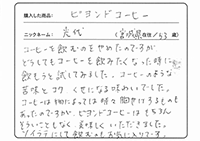 購入した商品: ビヨンドコーヒー
ニックネーム: 元代 (宮城県在住/63歳)
コーヒーを飲むのをやめたのですが
どうしてもコーヒーを飲みたくなった時に
飲もうと試してみました。コーヒーのような
苦味とコク くせになる味わいでした。
コーヒーは物によっては時々胃焼けするものも
あったのですが、ビヨンドコーヒーはもちろん
そういうこともなく美味しくいただきました。
ソイラテにして飲むのもお気に入りです。